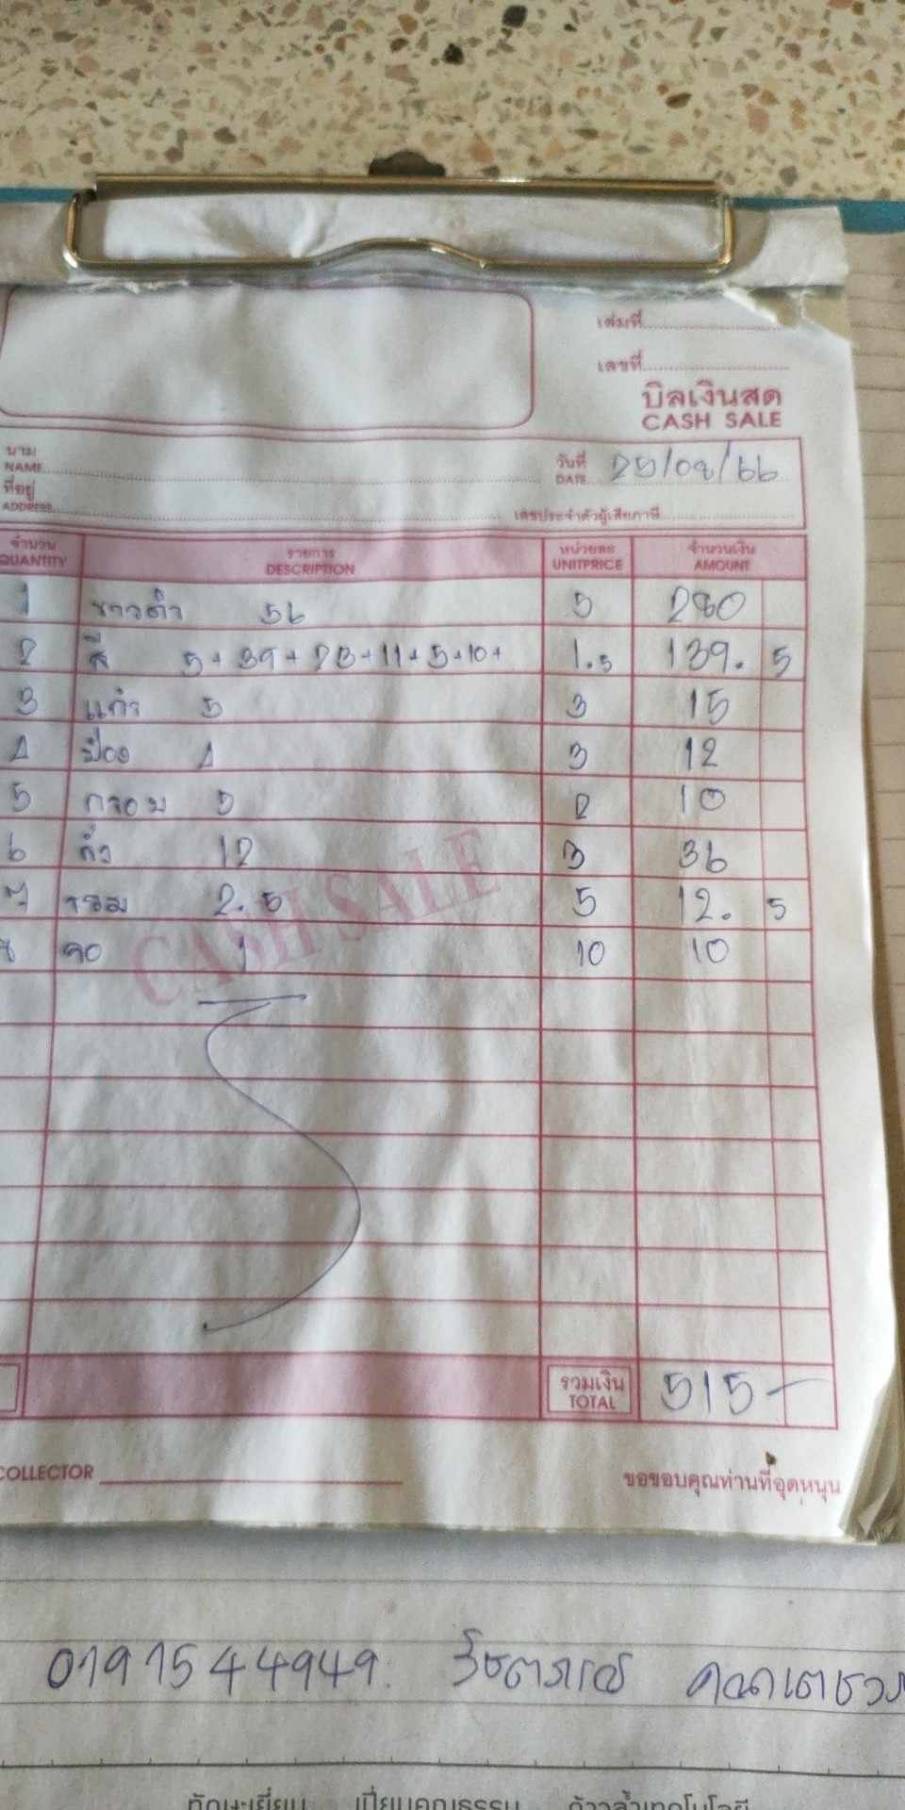 เล่มที่
เลขที่
บิลเงินสด
CASH SALE
นาม
NAME
วันที่ 25/08/66
DATE
ที่อยู่
ADDRESS
เลขประจำตัวผู้เสียภาษี
จำนวน รายการ หน่วยละ จำนวนเงิน
QUANTITY DESCRIPTION UNITPRICE AMOUNT
1 ขาวดำ 56 5 280
2 สี 5+39+23+11+5+10+ 1.5 139.5
3 แก้ว 5 3 15
4 4 3 12
5 กรอบ 5 2 10
6 12 3 36
7 2.5 5 12.5
8 1 10 10
CASH SALE
รวมเงิน 515-
TOTAL
COLLECTOR
ขอขอบคุณท่านที่อุดหนุน
019 1544949.
ทักษะเยี่ยม เปี่ยมคุณธรรม ก้าวล้ำเทคโนโลยี